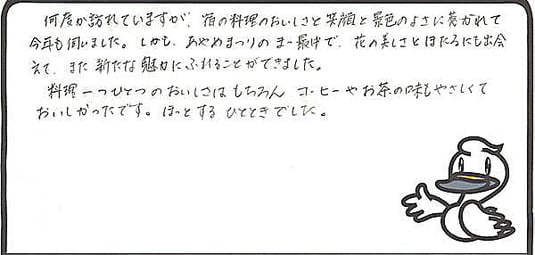 何度か訪れていますが、宿の料理のおいしさと笑顔と景色のよさに惹かれて
今年も伺いました。しかも、あやめまつりのまっ最中で、花の美しさとほたるにも出会
えて、また新たな魅力にふれることができました。
料理一つひとつのおいしさはもちろん コーヒーやお茶の味もやさしくて
おいしかったです。ほっとするひとときでした。